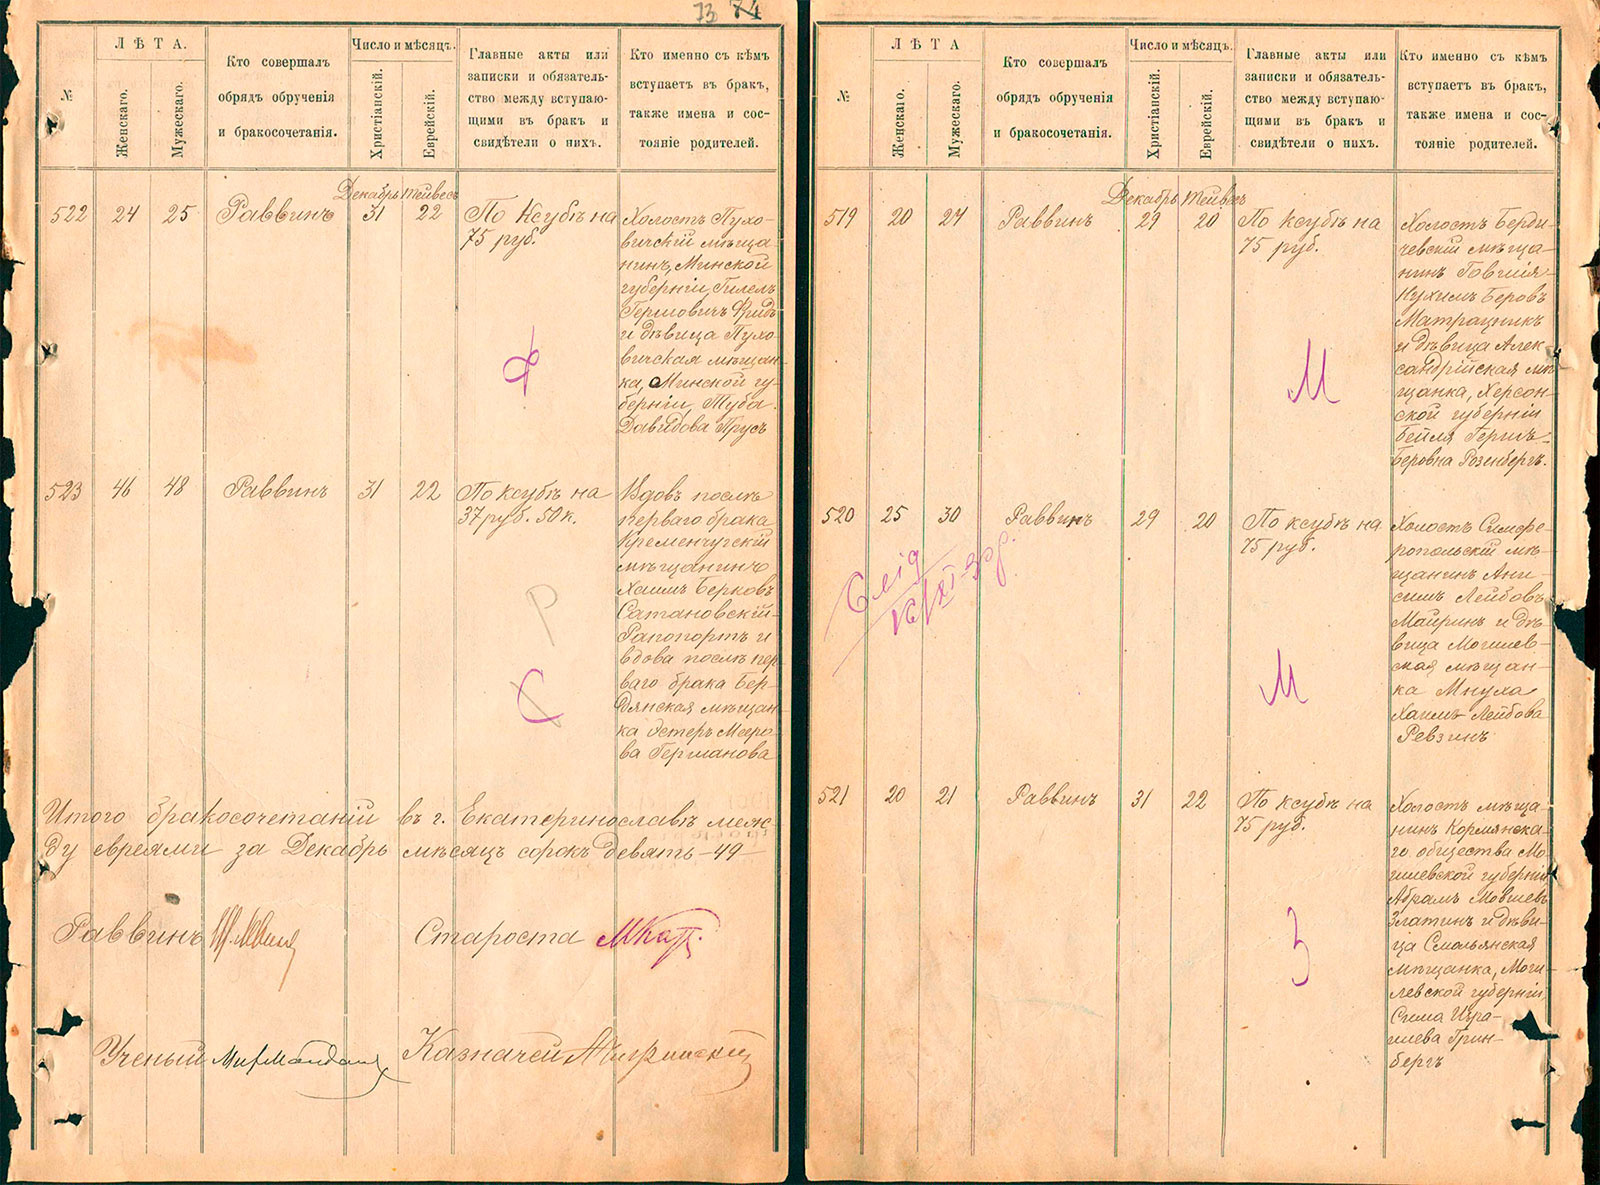 73 74
№
ЛѢТА.
Женскаго.
Мужескаго.
Кто совершалъ
обрядъ обрученія
и бракосочетанія.
Число и мѣсяцъ.
Христіанскій.
Еврейскій.
Главные акты или
записки и обязатель-
ство между вступаю-
щими въ бракъ и
свидѣтели о нихъ.
Кто именно съ кѣмъ
вступаетъ въ бракъ,
также имена и сос-
тояніе родителей.
Декабрь Тейвесъ
522 24 25 Раввинъ 31 22
По Ксубѣ на
75 руб.
Холостъ Пухо-
вичскій мѣща-
нинъ, Минской
губерніи, Гилель
Гершовичъ Фридъ
и дѣвица Пухо-
вичская мѣщан-
ка, Минской гу-
берніи, Туба
Давидова Прусъ
523 46 48 Раввинъ 31 22
По ксубѣ на
37 руб. 50 к.
Вдовъ послѣ
перваго брака
Кременчугскій
мѣщанинъ
Хаимъ Берковъ
Сатановскій-
Рапопортъ и
вдова послѣ пер
ваго брака Бер-
дянская мѣщан-
ка Эстеръ Мееро
ва Германова
Р
Итого бракосочетаній въ г. Екатеринославѣ меж-
ду евреями за Декабрь мѣсяцъ сорокъ девять -49-
Раввинъ
Староста
Ученый
Казначей
№
ЛѢТА
Женскаго.
Мужескаго.
Кто совершалъ
обрядъ обрученія
и бракосочетанія.
Число и мѣсяцъ.
Христіанскій.
Еврейскій.
Главные акты или
записки и обязатель-
ство между вступаю-
щими въ бракъ и
свидѣтели о нихъ.
Кто именно съ кѣмъ
вступаетъ въ бракъ,
также имена и сос-
тояніе родителей.
Декабрь Тейвесъ
519 20 27 Раввинъ 29 20
По ксубѣ на
75 руб.
Холостъ Берди-
чевскій мѣща-
нинъ Говшія-
Нухимъ Беровъ
Матрацникъ
и дѣвица Алек
сандрійская мѣ
щанка, Херсон-
ской губерніи
Бейля Гершъ-
Беровна Розенбергъ.
М
520 25 30 Раввинъ 29 20
По ксубѣ на
75 руб.
Холостъ Симфе-
ропольскій мѣ-
щанинъ Ани-
симъ Лейбовъ
Майринъ и дѣ-
вица Могилев-
ская мѣщан-
ка Мнуха
Хаимъ-Лейбова
Ревзинъ
М
521 20 21 Раввинъ 31 22
По ксубѣ на
75 руб.
Холостъ мѣща-
нинъ Кормянска-
го общества Мо-
гилевской губерніи
Абрамъ Мовшевъ
Златинъ и дѣви-
ца Смольянская
мѣщанка, Моги-
левской губерніи,
Сима Изра-
илева Грин-
бергъ
З